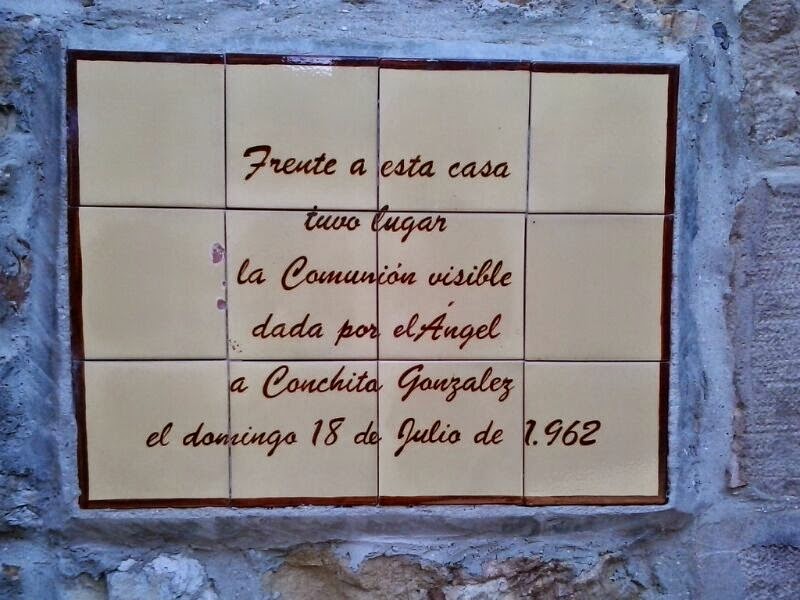 Frente a esta casa
tuvo lugar
la Comunión visible
dada por el Ángel
a Conchita Gonzalez
el domingo 18 de Julio de 1.962